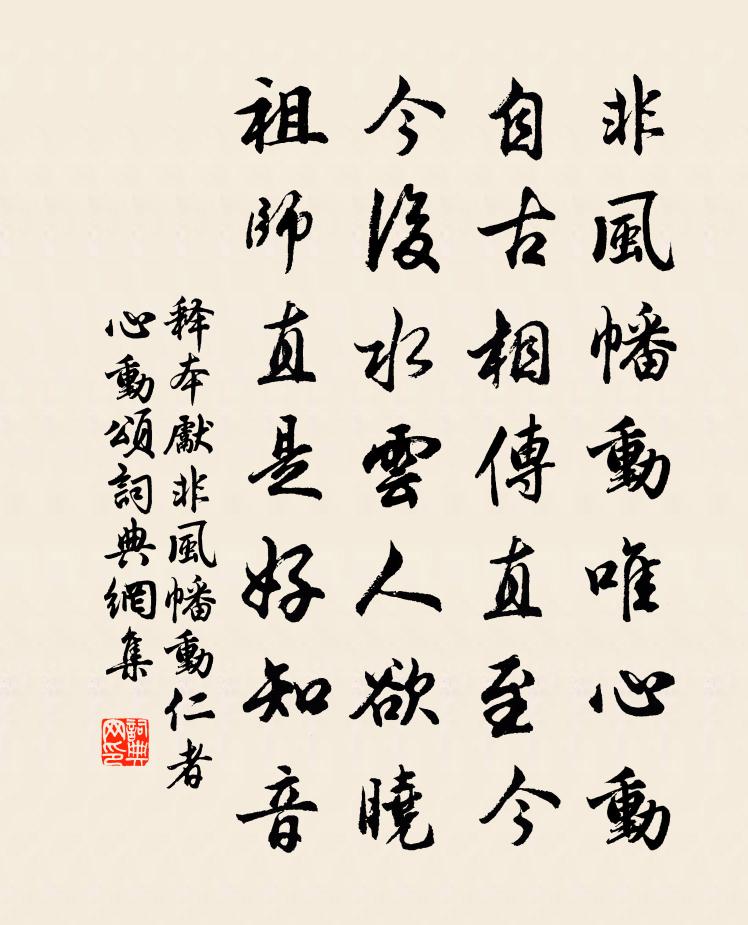 非風幡動唯心動
自古相傳直至今
今後水雲人欲曉
祖師直是好知音
释本獻非風幡動仁者
心動頌詞典網集
詞典
网印